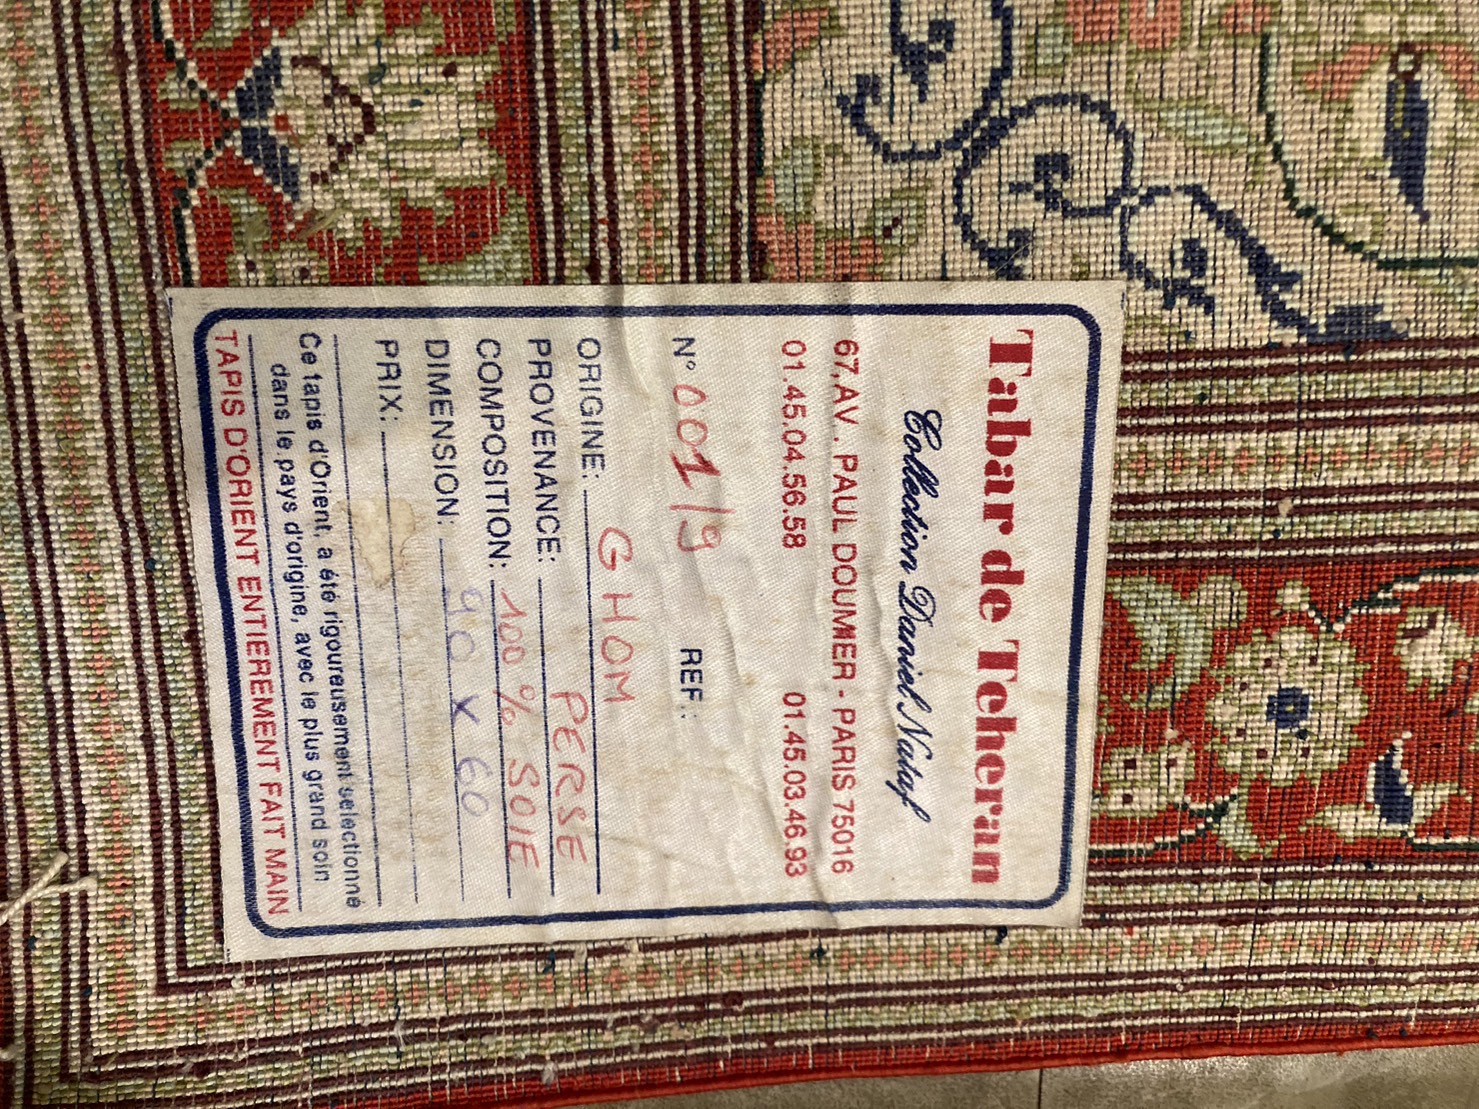 Tabar de Teheran
Collection Daniel Nataf
67, AV. PAUL DOUMER - PARIS 75016
01.45.04.56.58 01.45.03.46.93
N° 001/9 REF.:
ORIGINE: GHOM
PROVENANCE: PERSE
COMPOSITION: 100 % SOIE
DIMENSION: 90 x 60
PRIX:
Ce tapis d'Orient, a été rigoureusement sélectionné
dans le pays d'origine, avec le plus grand soin
TAPIS D'ORIENT ENTIEREMENT FAIT MAIN